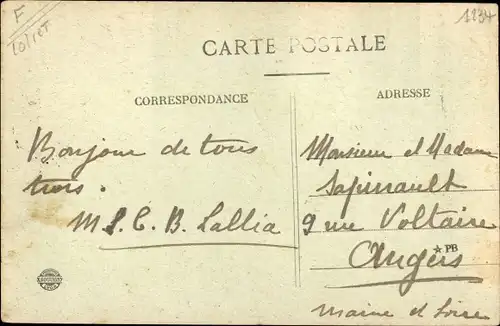 F
Loiret
1234
CARTE POSTALE
CORRESPONDANCE
ADRESSE
Bonjour de tous
trois.
M. L. C. B. Lallia
Monsieur et Madame
Sapinault
9 rue Voltaire
★PB
Angers
Maine et Loire